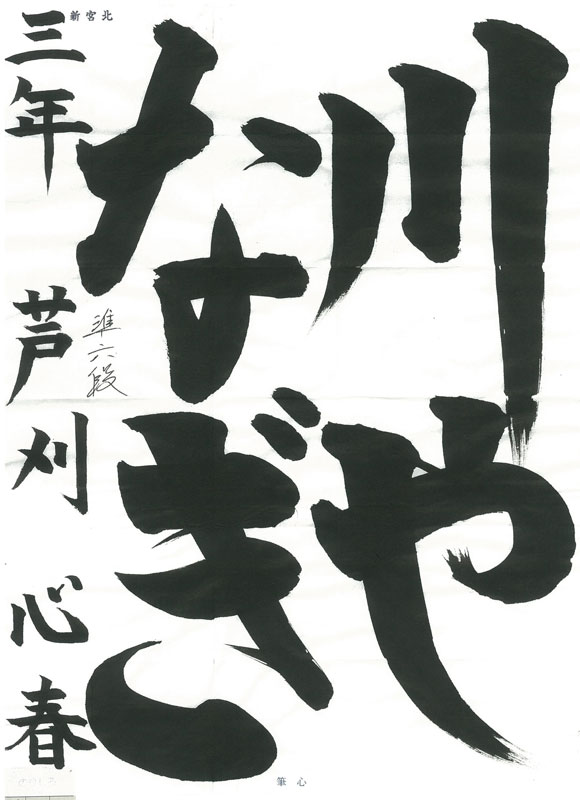 川や
なぎ
三年 芦刈 心春
準六段
北宮新
心筆